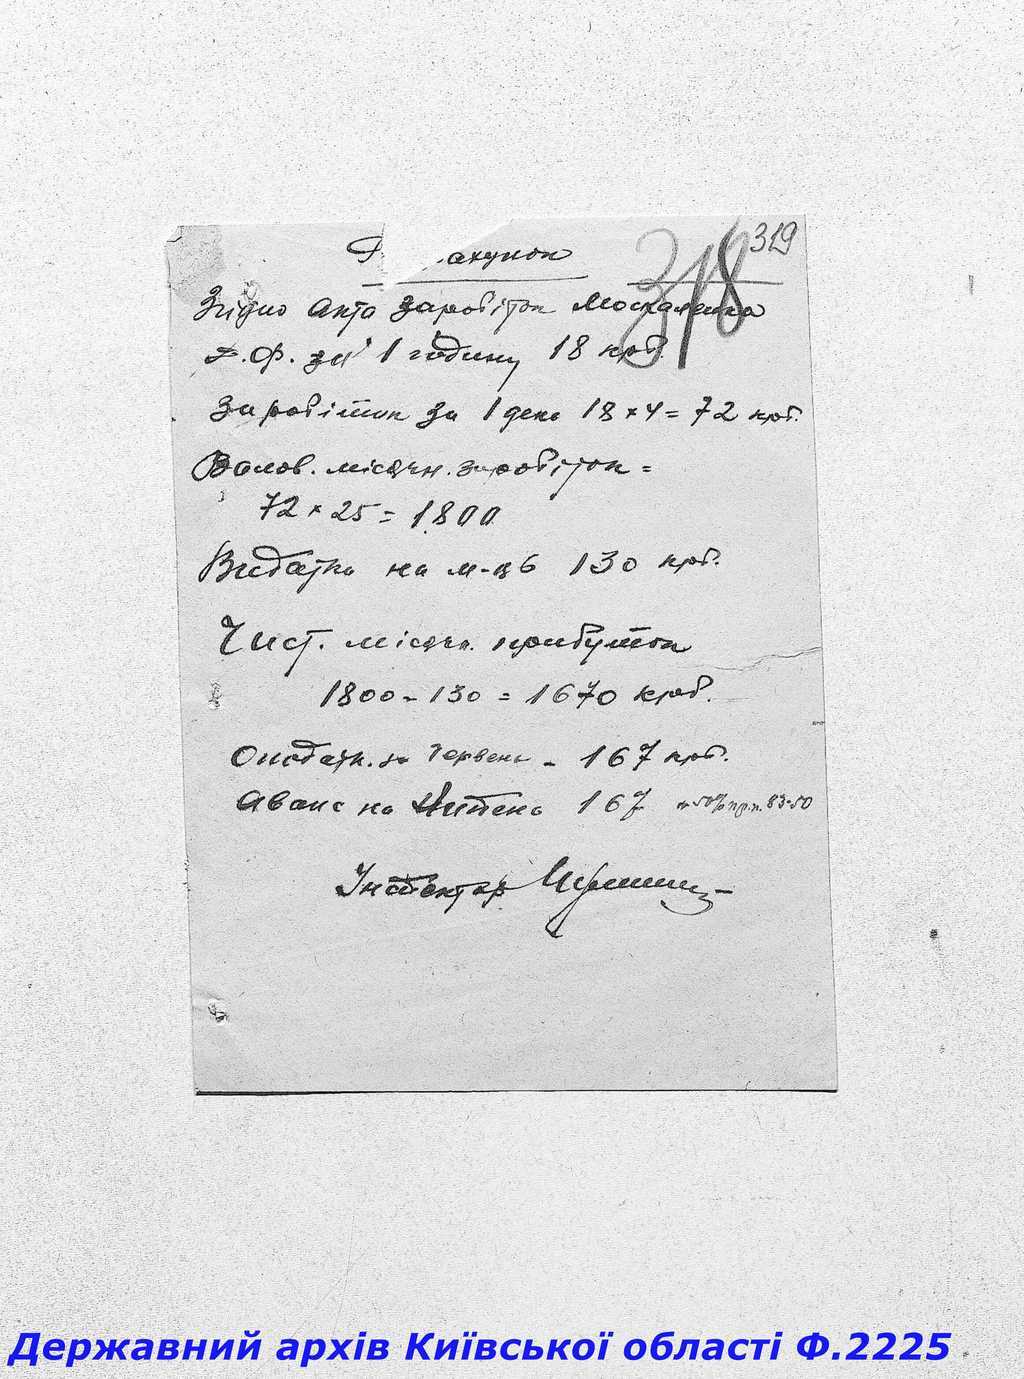 319
318
Р ахунок
Згідно Акта заробіток Москаленка
Ф. за 1 годину 18 крб
Заробіток за 1 день 18 × 4 = 72 крб.
Валов. місячн. заробіток =
72 × 25 = 1800
Видатки на м-ць 130 крб.
Чист. місячн. прибуток
1800 - 130 = 1670 крб.
Оподатк. за Червень - 167 крб.
Аванс на Липень 167 50% 83-50
Інспектор
Державний архів Київської області Ф.2225